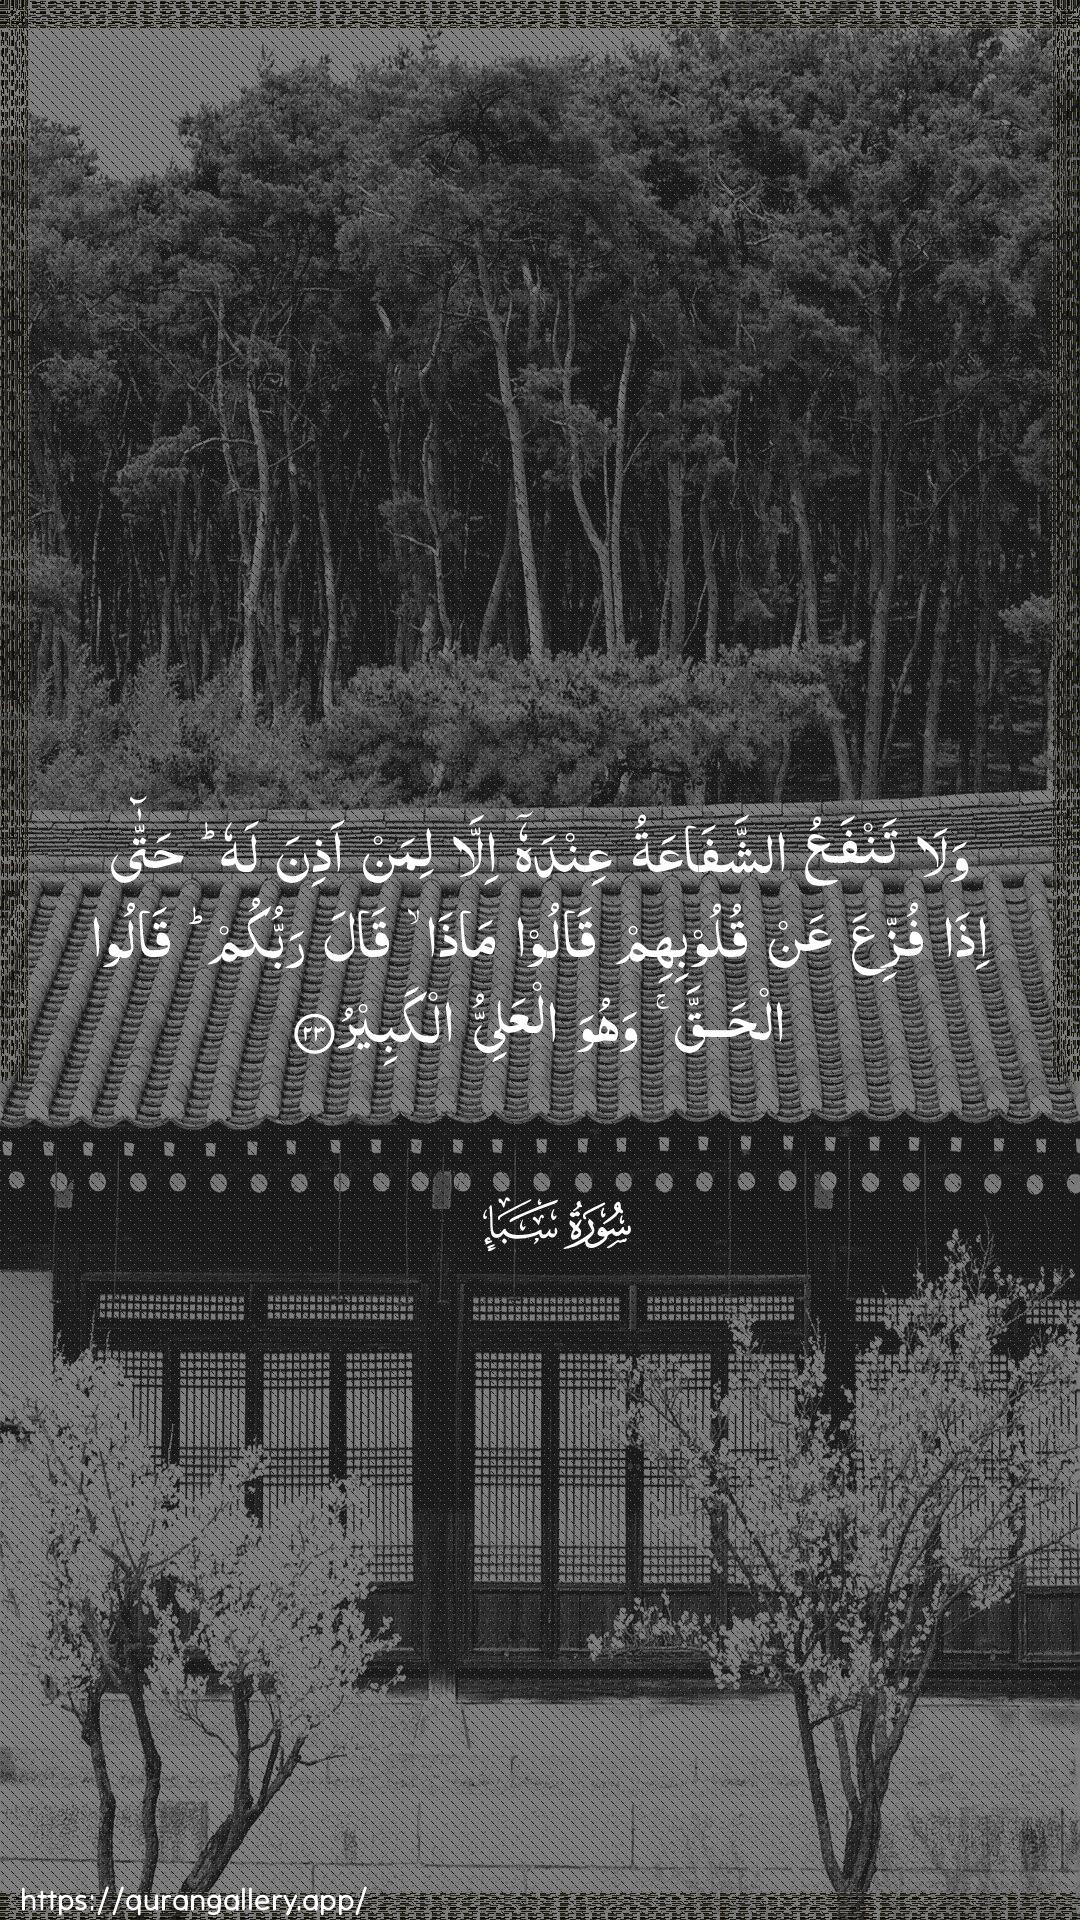 وَلَا تَنْفَعُ الشَّفَاعَةُ عِنْدَهٗۤ اِلَّا لِمَنْ اَذِنَ لَهٗ ؕ حَتّٰۤى
اِذَا فُزِّعَ عَنْ قُلُوْبِهِمْ قَالُوْا مَاذَا ۙ قَالَ رَبُّكُمْ ؕ قَالُوا
الْحَـقَّ ۚ وَهُوَ الْعَلِىُّ الْكَبِيْرُ ﴿۲۳﴾
سُوْرَةُ سَبَاٍ
https://qurangallery.app/